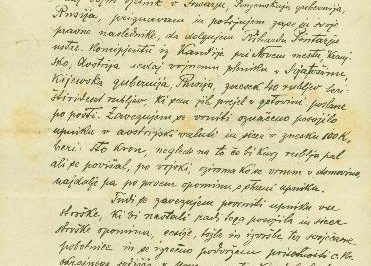 sedaj vojni ujetnik v Sivarju, Kijevskaja gubernija,
Rusija, priznavam in potrjujem zase in svoje
pravne naslednike, da dolgujem Rihardu Pintarju
iz Kandije pri Novem mestu, Kranj-
sko, Avstrija sedaj vojnemu plenniku v
Kijewska gubernija, Rusija, znesek 40 rubljev beri:
štirideset rubljev, ki sem jih prejel v gotovini poslane
po pošti. Zavezujem se vrniti označeno posojilo
upniku v avstrijski valuti in sicer v znesku 100 K,
beri: sto kron, negledé na to če bi kurz rublja pal
ali se povišal, po vojski, oziroma ko se vrnem v domovino,
najdalje pa po prvem opominu, s strani upnika.
Tudi se zavezujem povrniti upniku vse
stroške, ki bi nastali radi tega posojila in sicer
stroške opomina, cesije, tožbe in izvršbe ter
pobotnice in se izrečno podvržem pristojnosti c. kr.
okrajnega